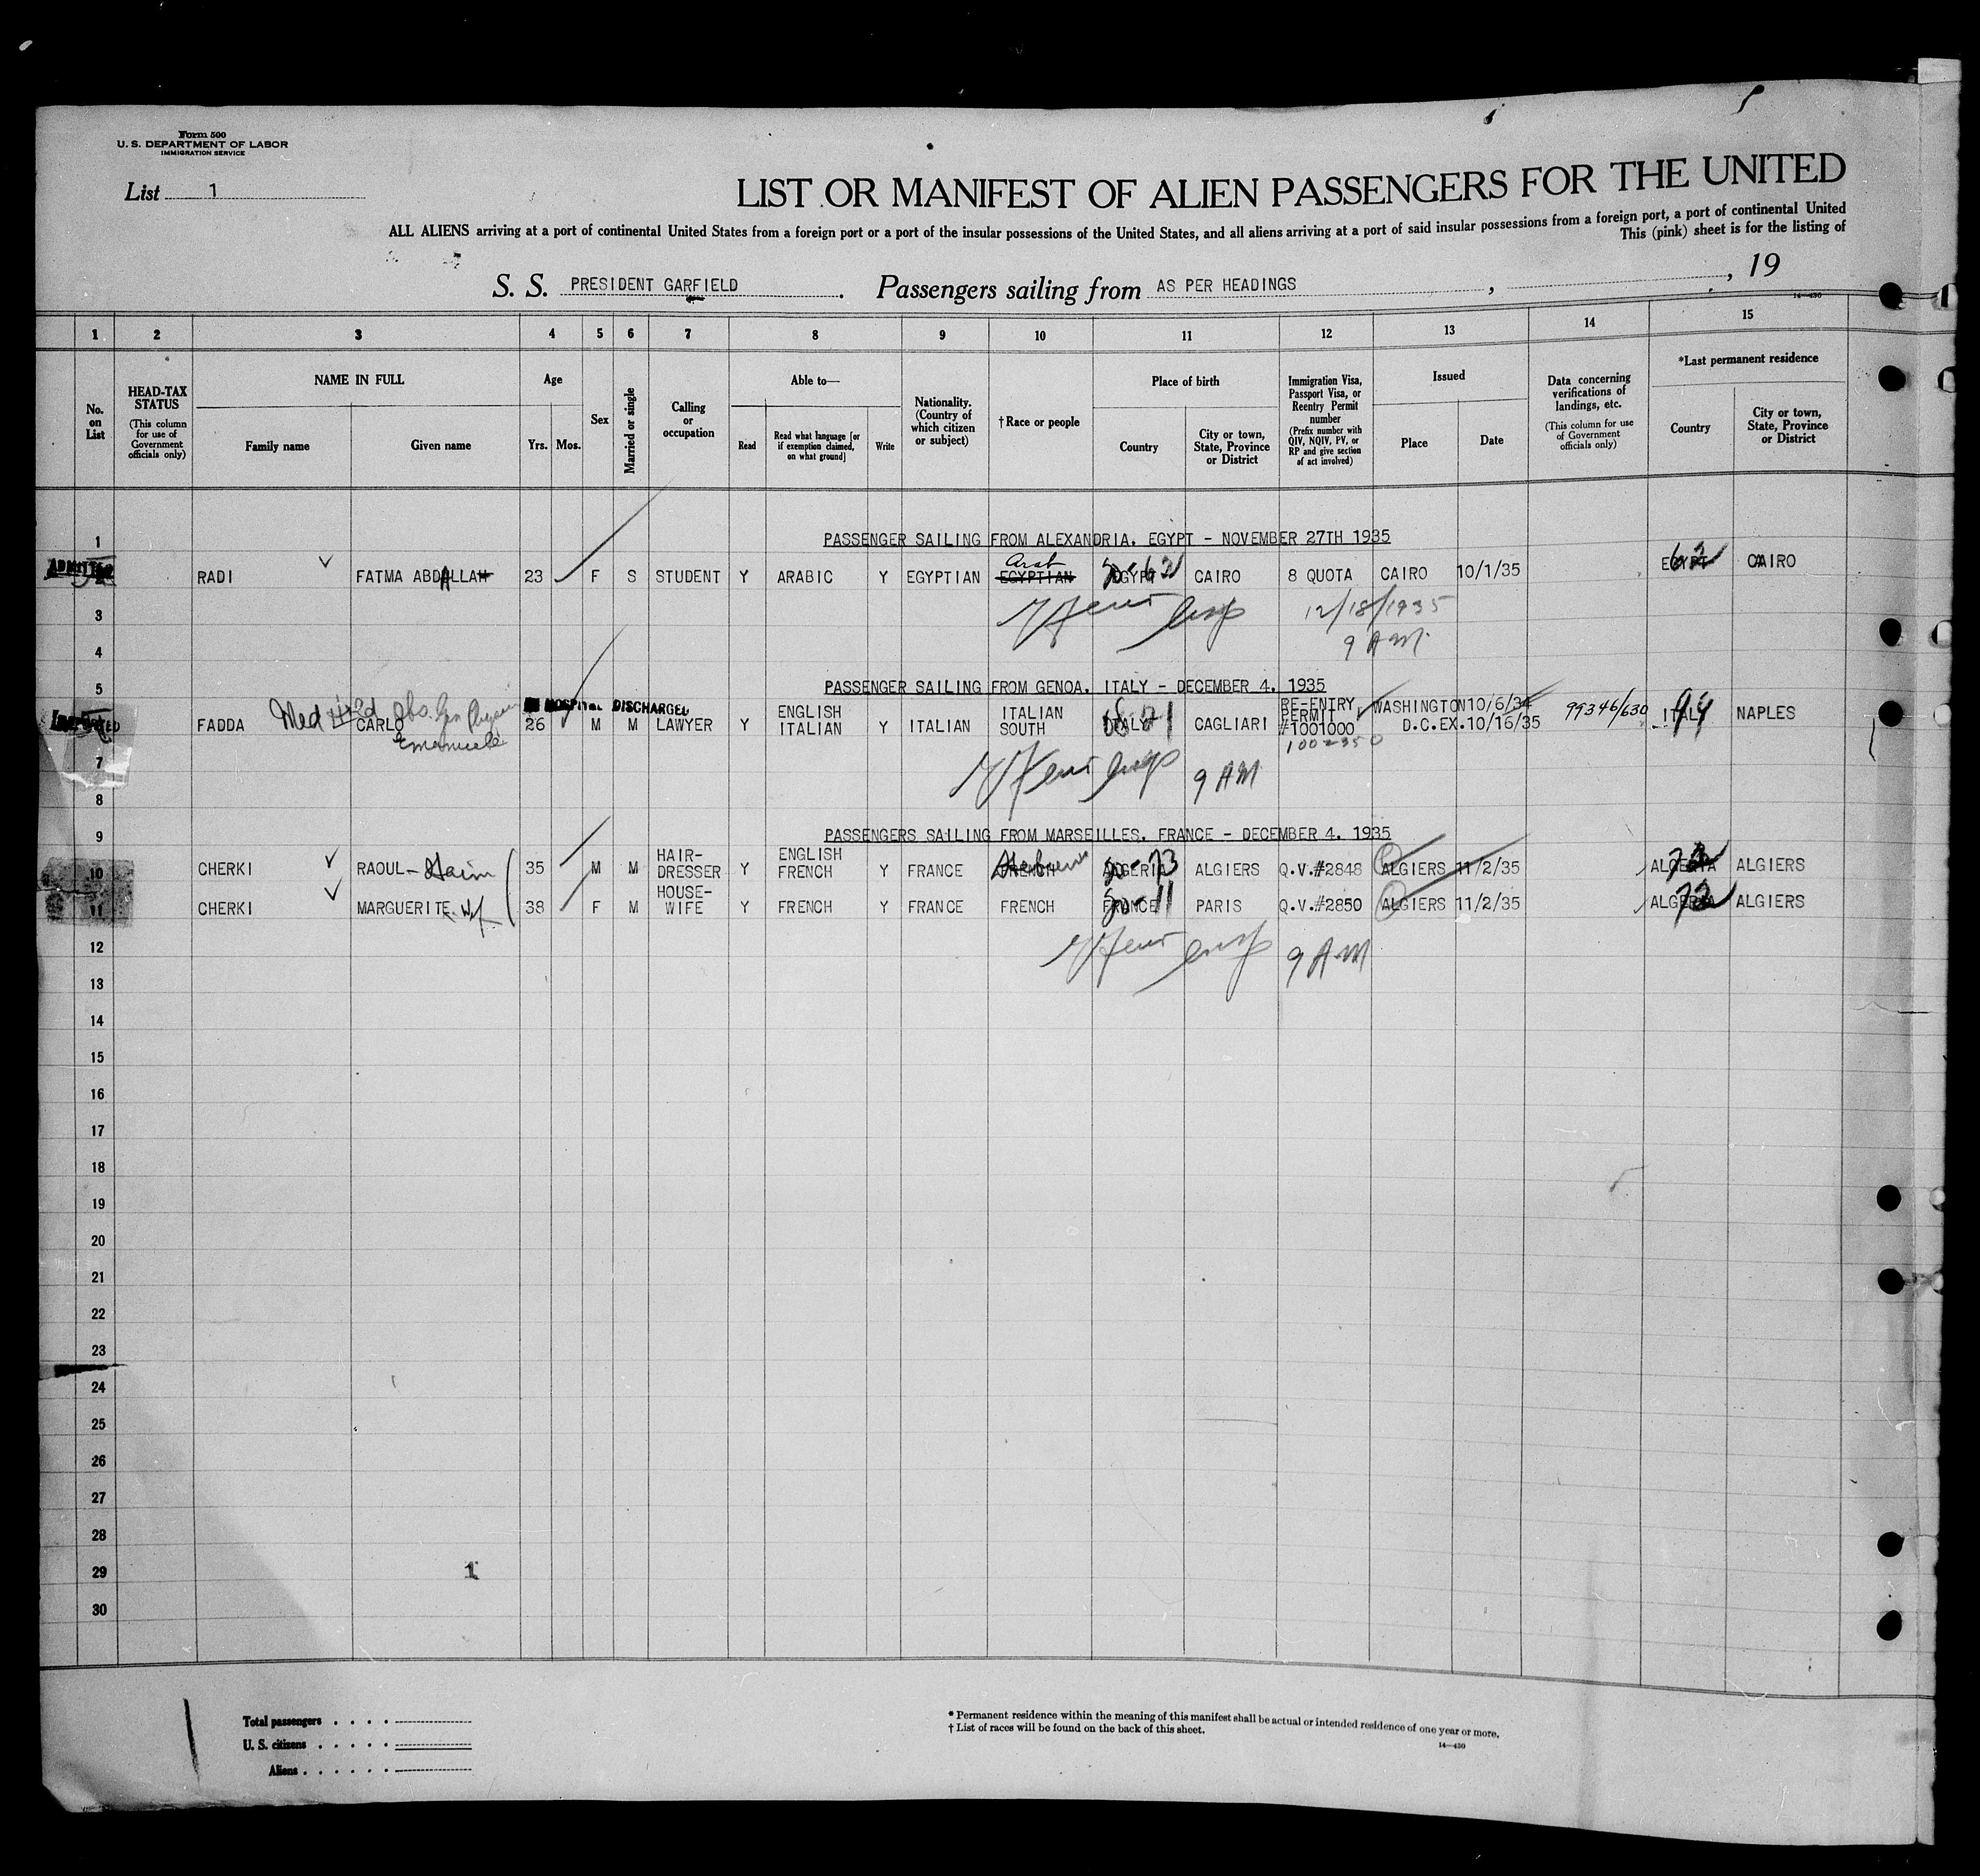 Form 500
U. S. DEPARTMENT OF LABOR
IMMIGRATION SERVICE
List 1
LIST OR MANIFEST OF ALIEN PASSENGERS FOR THE UNITED
ALL ALIENS arriving at a port of continental United States from a foreign port or a port of the insular possessions of the United States, and all aliens arriving at a port of said insular possessions from a foreign port, a port of continental United
This (pink) sheet is for the listing of
S. S. PRESIDENT GARFIELD. Passengers sailing from AS PER HEADINGS, , 19
14—430
1 2 3 4 5 6 7 8 9 10 11 12 13 14 15
No. on List
HEAD-TAX STATUS (This column for use of Government officials only)
NAME IN FULL
Family name
Given name
Age
Yrs. Mos.
Sex
Married or single
Calling or occupation
Able to—
Read
Read what language [or if exemption claimed, on what ground]
Write
Nationality. (Country of which citizen or subject)
†Race or people
Place of birth
Country
City or town, State, Province or District
Immigration Visa, Passport Visa, or Reentry Permit number (Prefix number with QIV, NQIV, PV, or RP and give section of act involved)
Issued
Place
Date
Data concerning verifications of landings, etc. (This column for use of Government officials only)
*Last permanent residence
Country
City or town, State, Province or District
1 PASSENGER SAILING FROM ALEXANDRIA, EGYPT - NOVEMBER 27TH 1935
Arab
ADMITTED RADI FATMA ABDALLAH 23 F S STUDENT Y ARABIC Y EGYPTIAN EGYPTIAN EGYPT CAIRO 8 QUOTA CAIRO 10/1/35 EGYPT 62 CAIRO
3 12/18/1935
4 9 AM.
5 PASSENGER SAILING FROM GENOA, ITALY - DECEMBER 4, 1935
Med Hld Obs. Gen HOSPITAL DISCHARGED
FADDA CARLO 26 M M LAWYER Y ENGLISH ITALIAN Y ITALIAN ITALIAN SOUTH ITALY CAGLIARI RE-ENTRY PERMIT #1001000 WASHINGTON D.C. 10/6/34 EX.10/16/35 99346/630 ITALY 94 NAPLES
Emanuele 1002350
7 9 AM
8
9 PASSENGERS SAILING FROM MARSEILLES, FRANCE - DECEMBER 4, 1935
10 CHERKI RAOUL - Haim 35 M M HAIR-DRESSER Y ENGLISH FRENCH Y FRANCE FRENCH Hebrew ALGERIA ALGIERS Q.V.#2848 ALGIERS 11/2/35 ALGERIA ALGIERS
11 CHERKI MARGUERITE Wf 38 F M HOUSE-WIFE Y FRENCH Y FRANCE FRENCH FRANCE PARIS Q.V.#2850 ALGIERS 11/2/35 ALGERIA 72 ALGIERS
12 9 AM
13
14
15
16
17
18
19
20
21
22
23
24
25
26
27
28
29 1
30
Total passengers
U. S. citizens
Aliens
* Permanent residence within the meaning of this manifest shall be actual or intended residence of one year or more.
† List of races will be found on the back of this sheet.
14—430